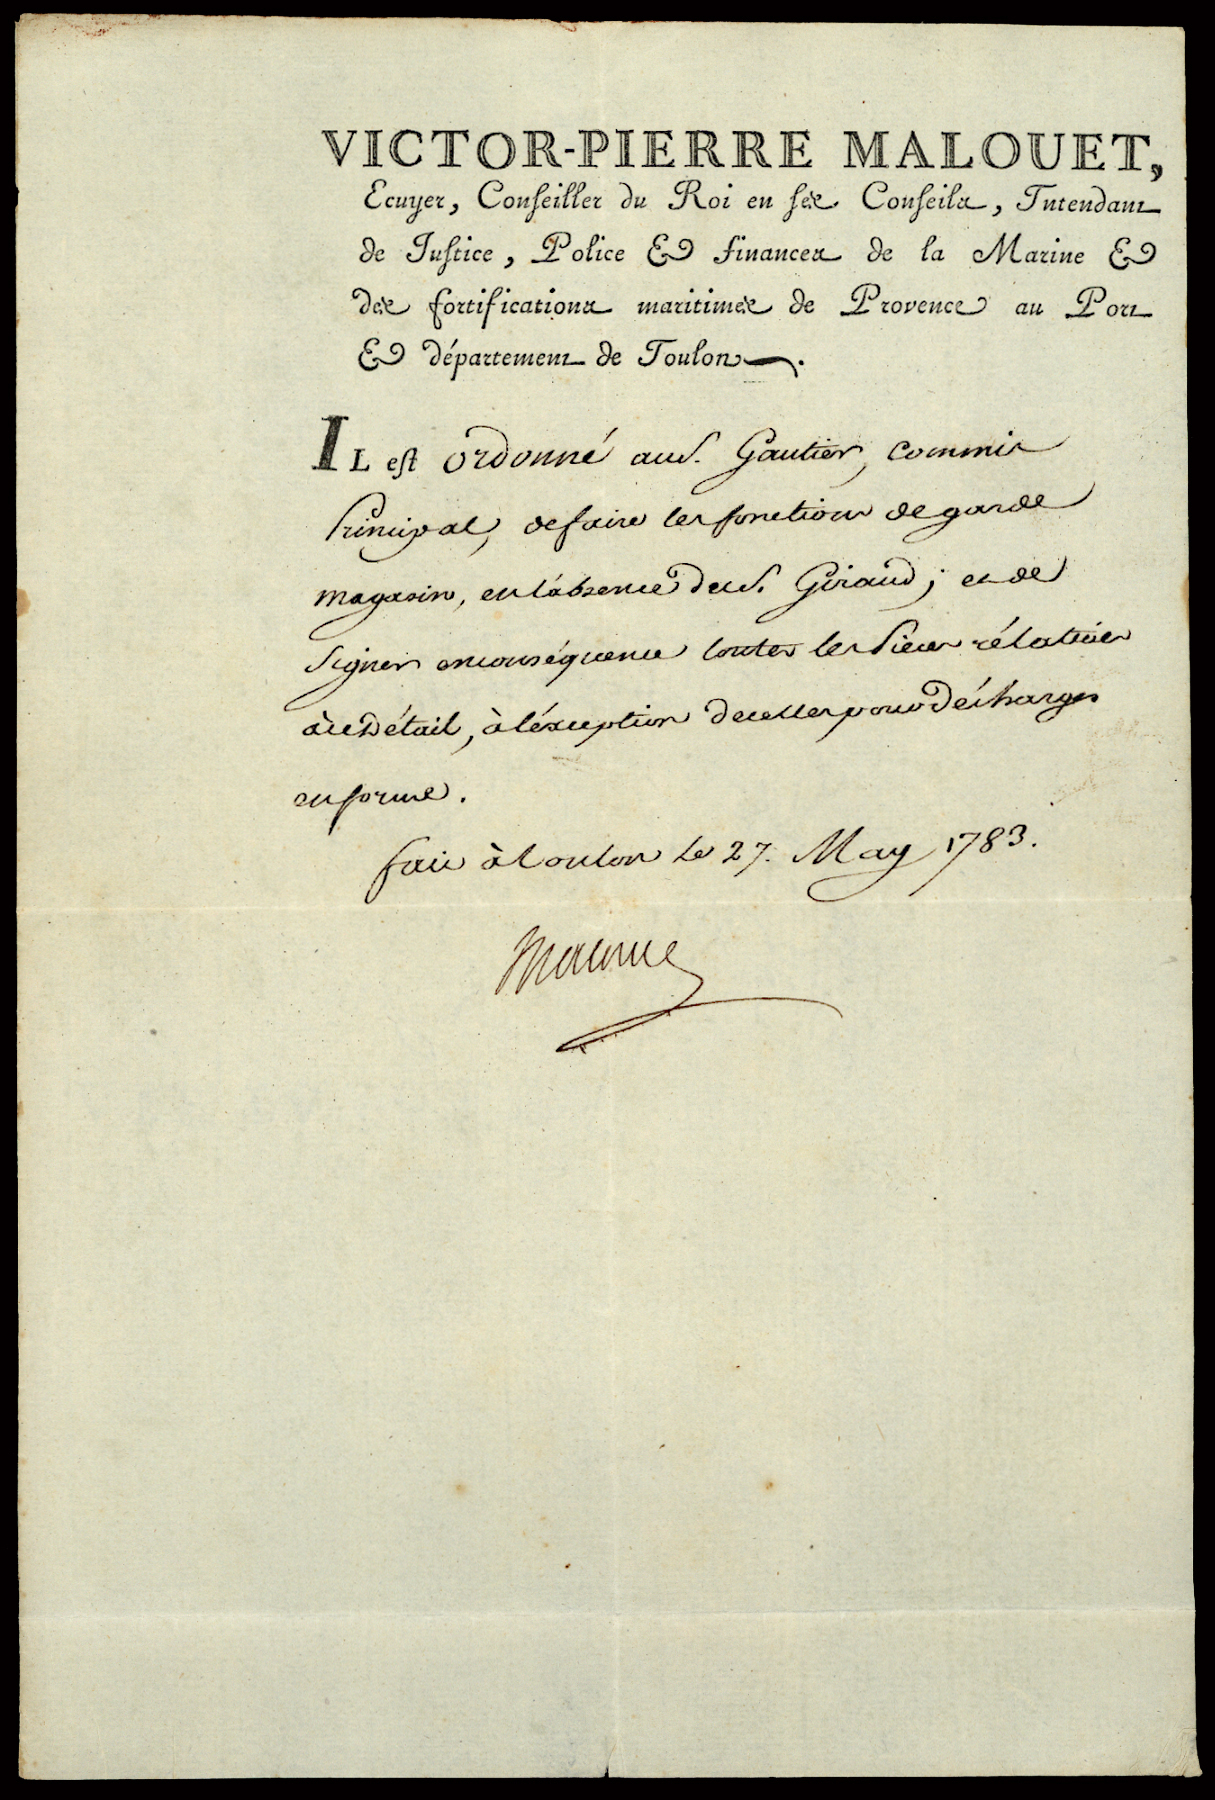 VICTOR-PIERRE MALOUET,
Ecuyer, Conseiller du Roi en ses Conseils, Intendant
de Justice, Police & finances de la Marine &
des fortifications maritimes de Provence au Port
& département de Toulon.
IL est ordonné au S. Gautier, commis
Principal, de faire les fonctions de garde
magasin, en l'absence du S. Giraud; et de
signer en conséquence toutes les Pieces rélatives
à ce Détail, à l'éxception de celles pour Décharges
en forme.
fait à Toulon le 27. May 1783.
Malouet